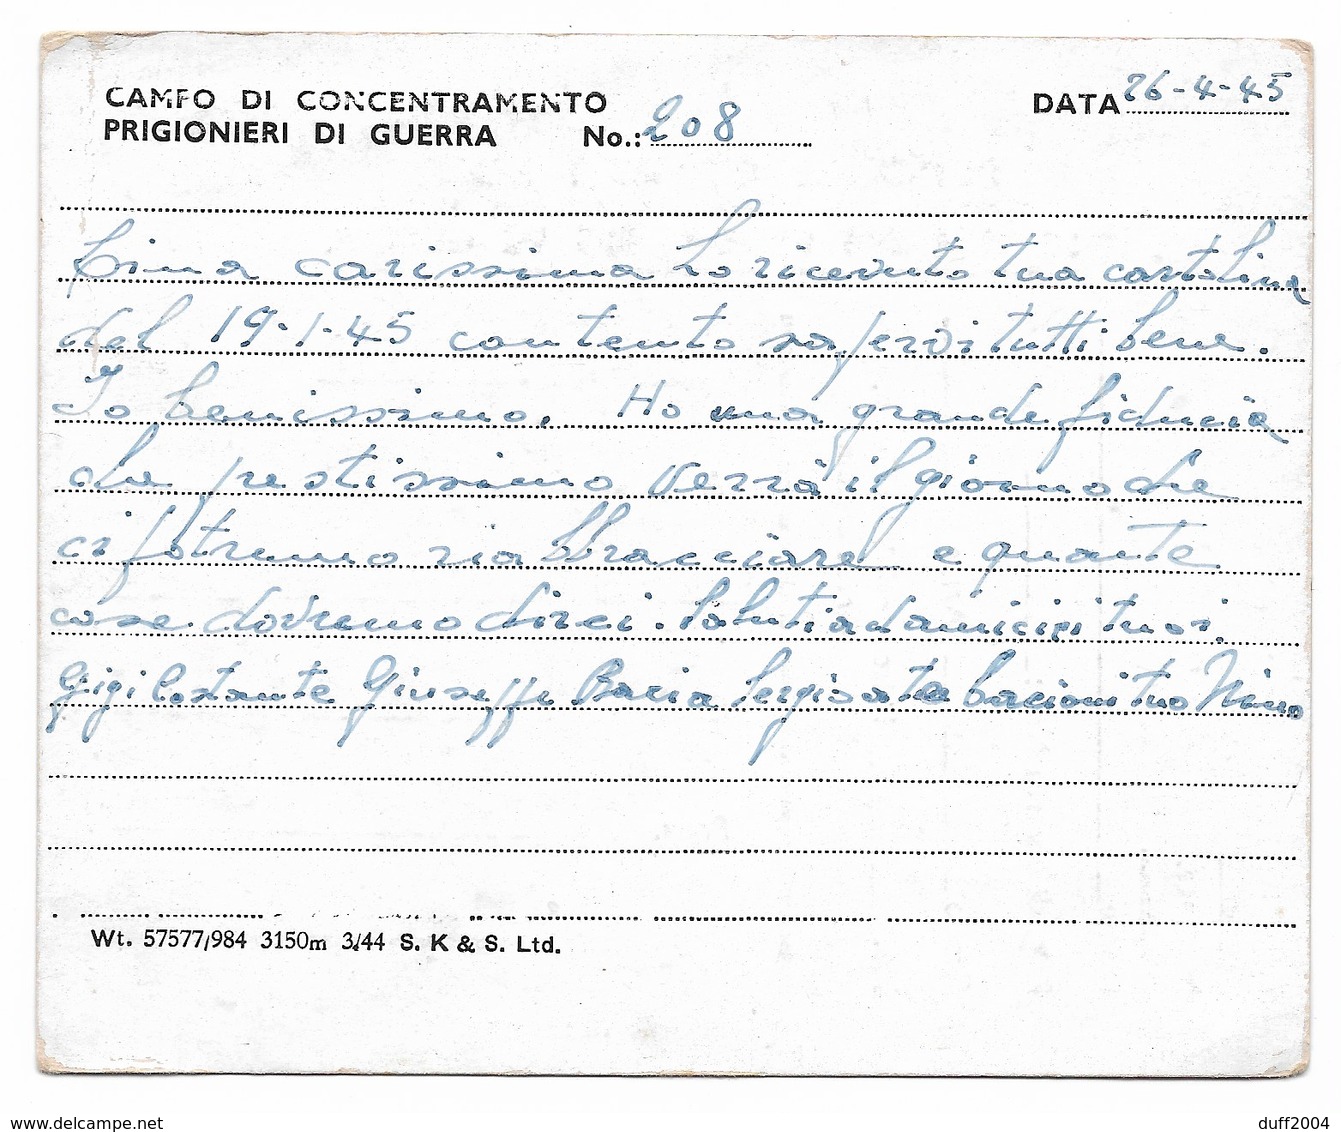 CAMPO DI CONCENTRAMENTO
PRIGIONIERI DI GUERRA No.: 208
DATA 26-4-45
carissima ho ricevuto tua cartolina
del 19-1-45 contento sapervi tutti bene.
Io benissimo. Ho una grande fiducia
che prestissimo verrà il giorno che
ci potremo riabbracciare e quante
cose dovremo dirci. Saluti ad amici tuoi.
Gigi Costante Giuseppe Bacia Sergio a te bacioni tuo Nino
Wt. 57577/984 3150m 3/44 S. K & S. Ltd.
www.delcampe.net
duff2004